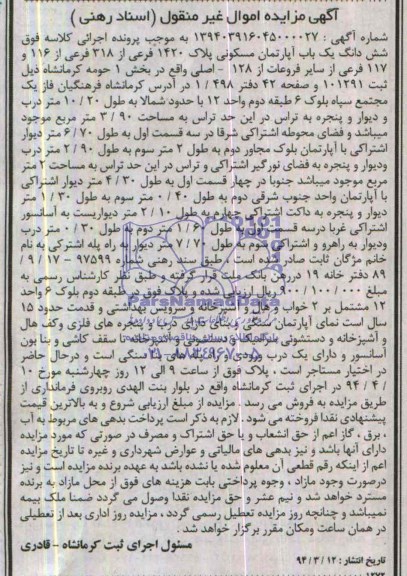 آگهی مزایده اموال غیر منقول (اسناد رهنی)
شماره آگهی : ۱۳۹۴۰۳۹۱۶۰۴۵۰۰۰۰۲۷ به موجب پرونده اجرائی کلاسه فوق
شش دانگ یک باب آپارتمان مسکونی پلاک ۱۴۲۰ فرعی از ۳۱۸ فرعی از ۱۱۶ و
۱۱۷ فرعی از سایر فروعات از ۱۲۸ - اصلی واقع در بخش ۱ حومه کرمانشاه ذیل
ثبت ۱۰۱۲۹۱ و صفحه ۴۲ دفتر ۴۹۸ / ۱ در آدرس کرمانشاه فرهنگیان فاز یک
مجتمع سپاه بلوک ۶ طبقه دوم واحد ۱۲ با حدود شمالا به طول ۲۰ / ۱۰ متر درب
و دیوار و پنجره به تراس در این حد تراس به مساحت ۹۰ / ۳ متر مربع موجود
میباشد و فضای محوطه اشتراکی شرقا در سه قسمت اول به طول ۷۰ / ۶ متر دیوار
اشتراکی با آپارتمان بلوک مجاور دوم به طول ۲ متر سوم به طول ۹۰ / ۲ متر درب
ودیوار و پنجره به فضای نورگیر اشتراکی و تراس در این حد تراس به مساحت ۲ متر
مربع موجود میباشد جنوبا در چهار قسمت اول به طول ۳۰ / ۴ متر دیوار اشتراکی
با آپارتمان واحد جنوب شرقی دوم به طول ۴۰ / ۰ متر سوم به طول ۳۰ / ۱ متر
دیوار و پنجره به داکت اشتراکی چهارم به طول ۱۰ / ۲ متر دیواریست به آسانسور
اشتراکی غربا درسه قسمت اول به طول ۶۰ / ۱ متر دوم به طول ۳۰ / ۰ متر درب
ودیوار به راهرو و اشتراکی سوم به طول ۷۰ / ۷ متر دیوار به راه پله اشترکی به نام
خانم مژگان ثابت صادر شده است . طبق سند رهنی شماره ۹۷۵۹۹ - ۱۷ / ۹ /
۸۹ دفتر خانه ۱۹ دررهن بانک ملت قرار گرفته و طبق نظر کارشناس رسمی به
مبلغ ۹۰۰/۱۰۰/۰۰۰ ریال ارزیابی شده و پلاک فوق در طبقه دوم بلوک ۶ واحد
۱۲ مشتمل بر ۲ خواب و هال و آشپزخانه و سرویس بهداشتی و قدمت حدود ۱۵
سال است نمای آپارتمان سنگی و بنای دارای درب و پنجره های فلزی وکف هال
و آشپزخانه و دستشوئی سرامیک
سقف کاشی و بنا بون
آسانسور و دارای یک درب ورودی
سنگی است و درحال حاضر
در اختیار مستاجر است ، پلاک فوق از ساعت ۹ الی ۱۲ روز چهارشنبه مورخ ۱۰
/ ۴ / ۹۴ در اجرای ثبت کرمانشاه واقع در بلوار بنت الهدی روبروی فرمانداری از
طریق مزایده به فروش می رسد . مزایده از مبلغ ارزیابی شروع و به بالاترین قیمت
پیشنهادی نقدا فروخته می شود . لازم به ذکر است پرداخت بدهی های مربوط به آب
، برق ، گاز اعم از حق انشعاب و یا حق اشتراک و مصرف در صورتی که مورد مزایده
دارای آنها باشد و نیز بدهی های مالیاتی و عوارض شهرداری و غیره تا تاریخ مزایده
اعم از اینکه رقم قطعی آن معلوم شده یا نشده باشد به عهده برنده مزایده است و نیز
درصورت وجود مازاد ، وجوه پرداختی بابت هزینه های فوق از محل مازاد به برنده
مسترد خواهد شد و نیم عشر و حق مزایده نقدا وصول می گردد ضمنا ملک بیمه
نمیباشد و چنانچه روز مزایده تعطیل رسمی گردد ، مزایده روز اداری بعد از تعطیلی
در همان ساعت ومکان مقرر برگزار خواهد شد .
مسئول اجرای ثبت کرمانشاه - قادری
تاریخ انتشار : ۱۲ / ۳ / ۹۴
ParsNamadData